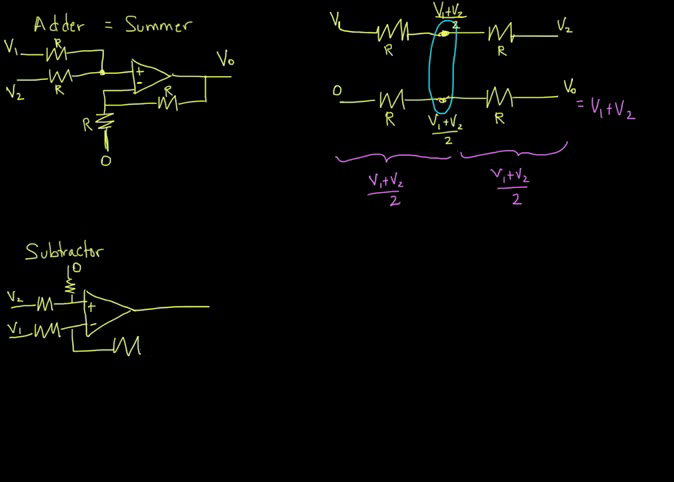 Adder = Summer
V₁
R
V₂
R
+
-
R
V₀
R
0
V₁
R
V₁+V₂
2
R
V₂
0
R
V₁+V₂
2
R
V₀
= V₁+V₂
V₁+V₂
2
V₁+V₂
2
Subtractor
0
V₂
+
V₁
-